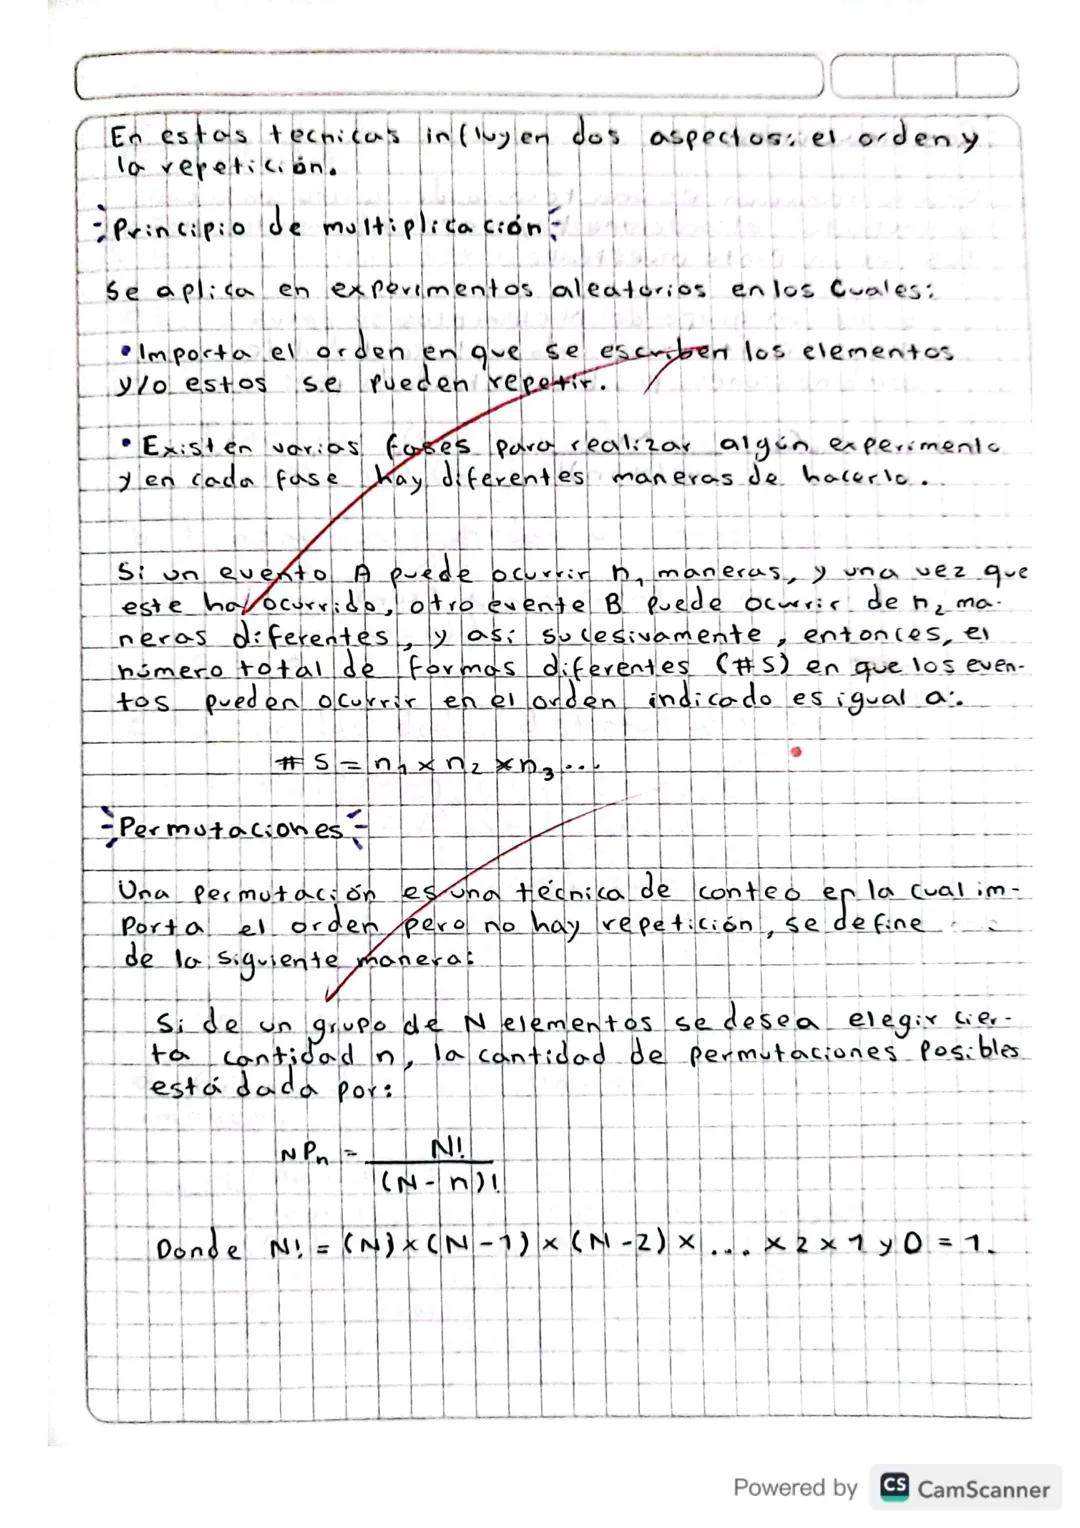 En estas tecnicas influyen dos aspectos: el orden y
la repetición.
Principio de multiplicación
Se aplica en experimentos aleatorios en los cuales:
• Importa el orden en que se escriben los elementos
y/o estos se pueden repetir.
• Existen varias fases para realizar algún experimento
y en cada fase hay diferentes maneras de hacerlo.
Si un evento A puede ocurrir n₁ maneras, y una vez que
este ha ocurrido, otro evente B puede ocurrir de n₂ ma-
neras diferentes, y así sucesivamente, entonces, el
número total de formas diferentes (#S) en que los even-
tos pueden ocurrir en el orden indicado es igual a:
# S = n₁ x n₂ x n₃ ...
Permutaciones
Una permutación es una técnica de conteo en la cual im-
porta el orden pero no hay repetición, se define
de la siguiente manera:
Si de un grupo de N elementos se desea elegir cier-
ta cantidad n, la cantidad de permutaciones posibles
está dada por:
NPn = N!
(N-n)!
Donde N! = (N)x(N-1)x(N-2)x...x2x1 y 0 = 1.
Powered by CS CamScanner